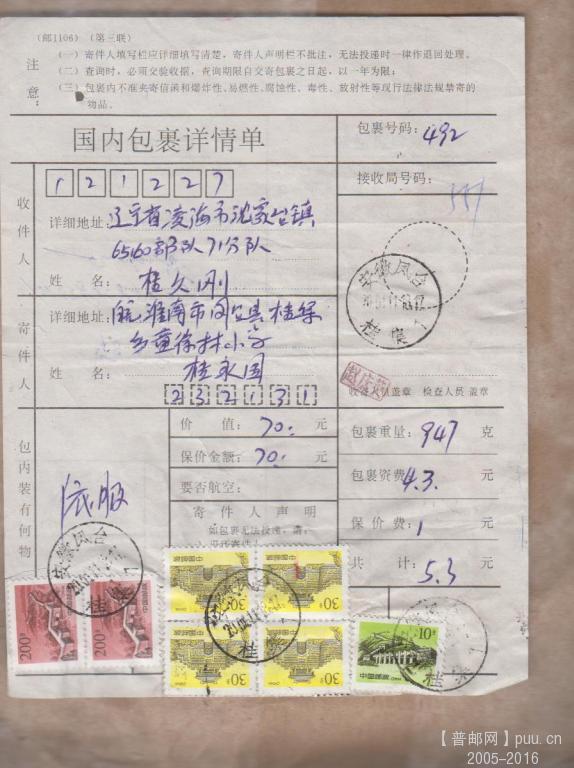 (邮1106) (第三联)
注意:
(一) 寄件人填写栏应详细填写清楚,寄件人声明栏不批注,无法投递时一律作退回处理。
(二) 查询时,必须交验收据,查询期限自交寄包裹之日起,以一年为限;
(三) 包裹内不准夹寄信函和爆炸性、易燃性、腐蚀性、毒性、放射性等现行法律法规禁寄的
物品。
国内包裹详情单
包裹号码: 492
接收局号码: 557
收件人
121227
详细地址: 辽宁省凌海市沈家台镇
65160部队71分队
姓 名: 桂久刚
寄件人
详细地址: 皖淮南市凤台县桂集
乡童徐林小学
姓 名: 桂永国
232131
安徽凤台
桂集
收寄人员盖章 检查人员盖章
包内装有何物
衣服
价 值: 70. 元
保价金额: 70. 元
要否航空:
寄件人声明
如包裹无法投递,请:
包裹重量: 947 克
包裹资费 4.3 元
保 价 费: 1 元
共 计: 5.3 元
安徽凤台
桂集
200分
200分
中国邮政
30分
中国邮政
30分
30分
30分
10分
中国邮政
【普邮网】puu.cn
2005-2016